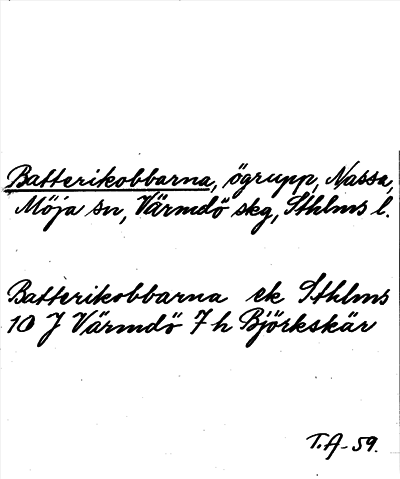 Batterikobbarna, ögrupp, Nassa,
Möja sn, Värmdö skg, Sthlms l.
Batterikobbarna ek Sthlms
10 J Värmdö 7 h Björkskär
T.A-59.